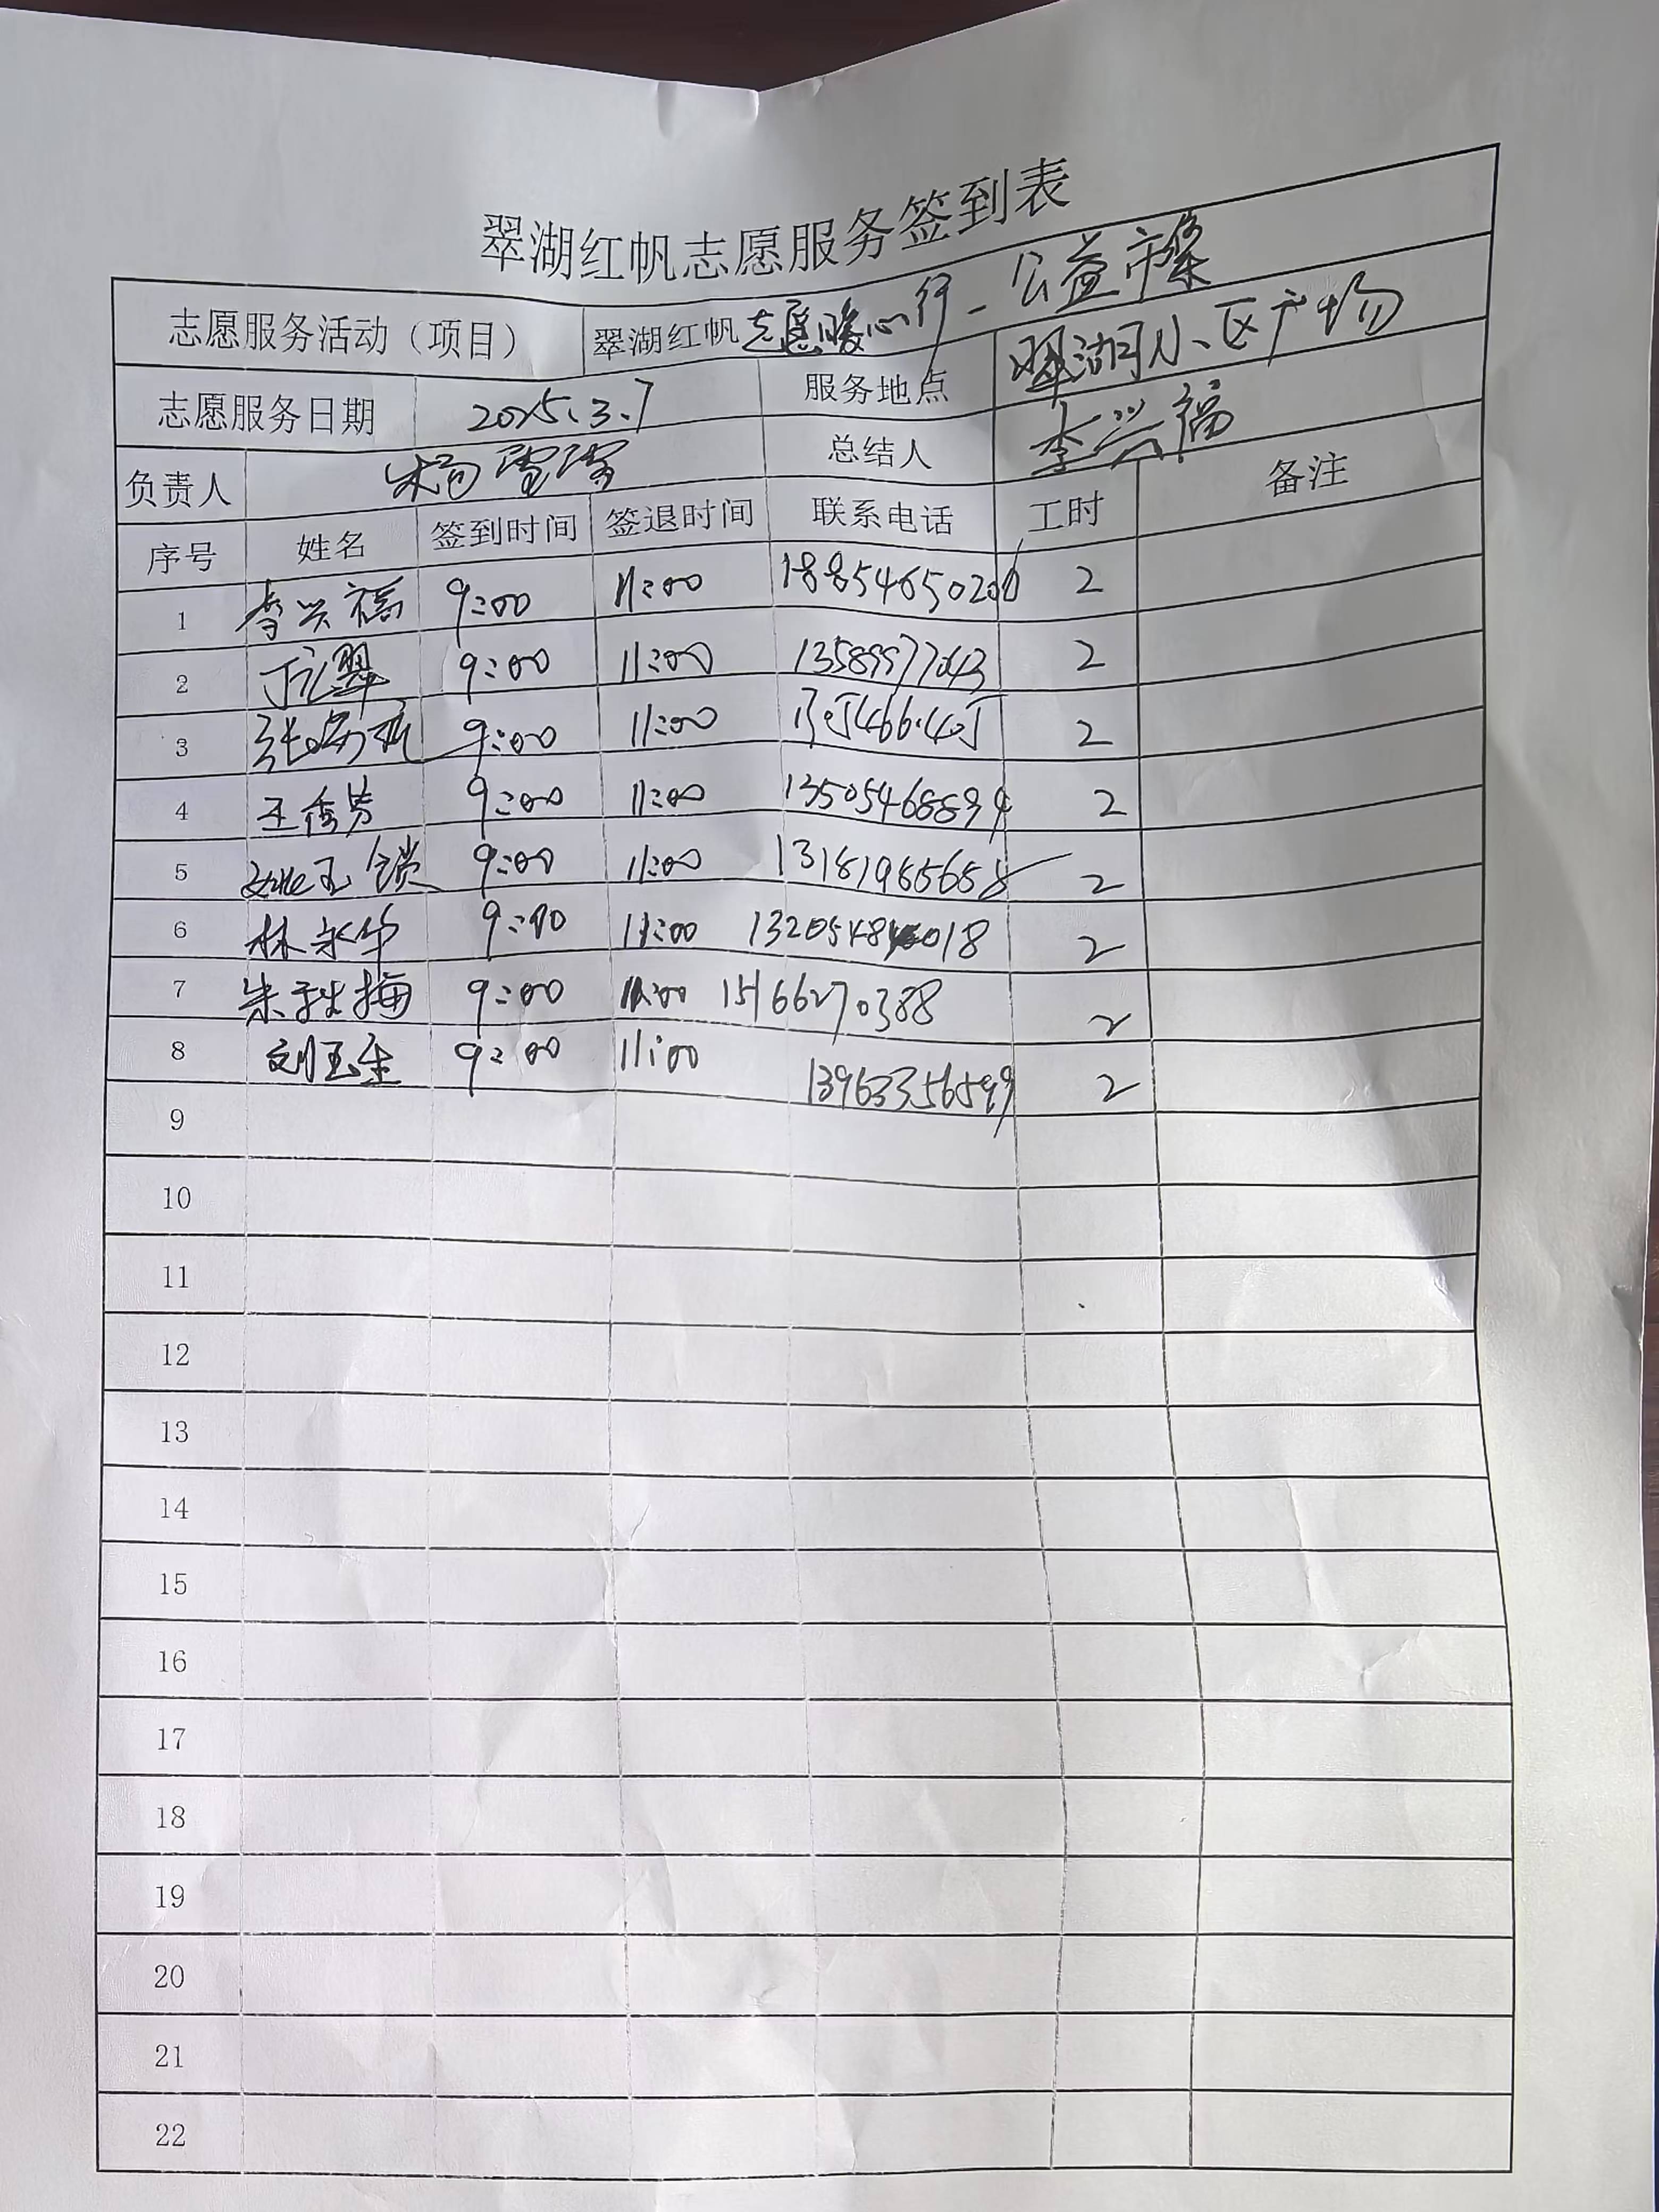 翠湖红帆志愿服务签到表
志愿服务活动（项目） 翠湖红帆志愿暖心行－公益市集
志愿服务日期 2025.3.7 服务地点 翠湖小区广场
负责人 杨雪 总结人 李兴福
序号 姓名 签到时间 签退时间 联系电话 工时 备注
1 李兴福 9:00 11:00 18854650206 2
2 9:00 11:00 13589977043 2
3 9:00 11:00 2
4 王秀芳 9:00 11:00 13505468894 2
5 姚玉锁 9:00 11:00 2
6 林永华 9:00 11:00 2
7 朱秋梅 9:00 11:00 15166270388 2
8 刘玉 9:00 11:00 13963356599 2
9
10
11
12
13
14
15
16
17
18
19
20
21
22